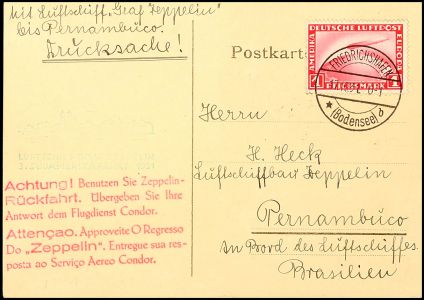 mit Luftschiff „Graf Zeppelin"
bis Pernambuco.
Drucksache!
Postkarte
DEUTSCHE LUFTPOST
1 REICHSMARK 1
FRIEDRICHSHAFEN
(Bodensee) b
Herrn
H. Heck
Luftschiffbau Zeppelin
Pernambuco
An Bord des Luftschiffes.
Brasilien
Achtung! Benutzen Sie Zeppelin-
Rückfahrt. Übergeben Sie Ihre
Antwort dem Flugdienst Condor.
Attençao. Approveite O Regresso
Do „Zeppelin". Entregue sua res-
posta ao Serviço Aereo Condor.